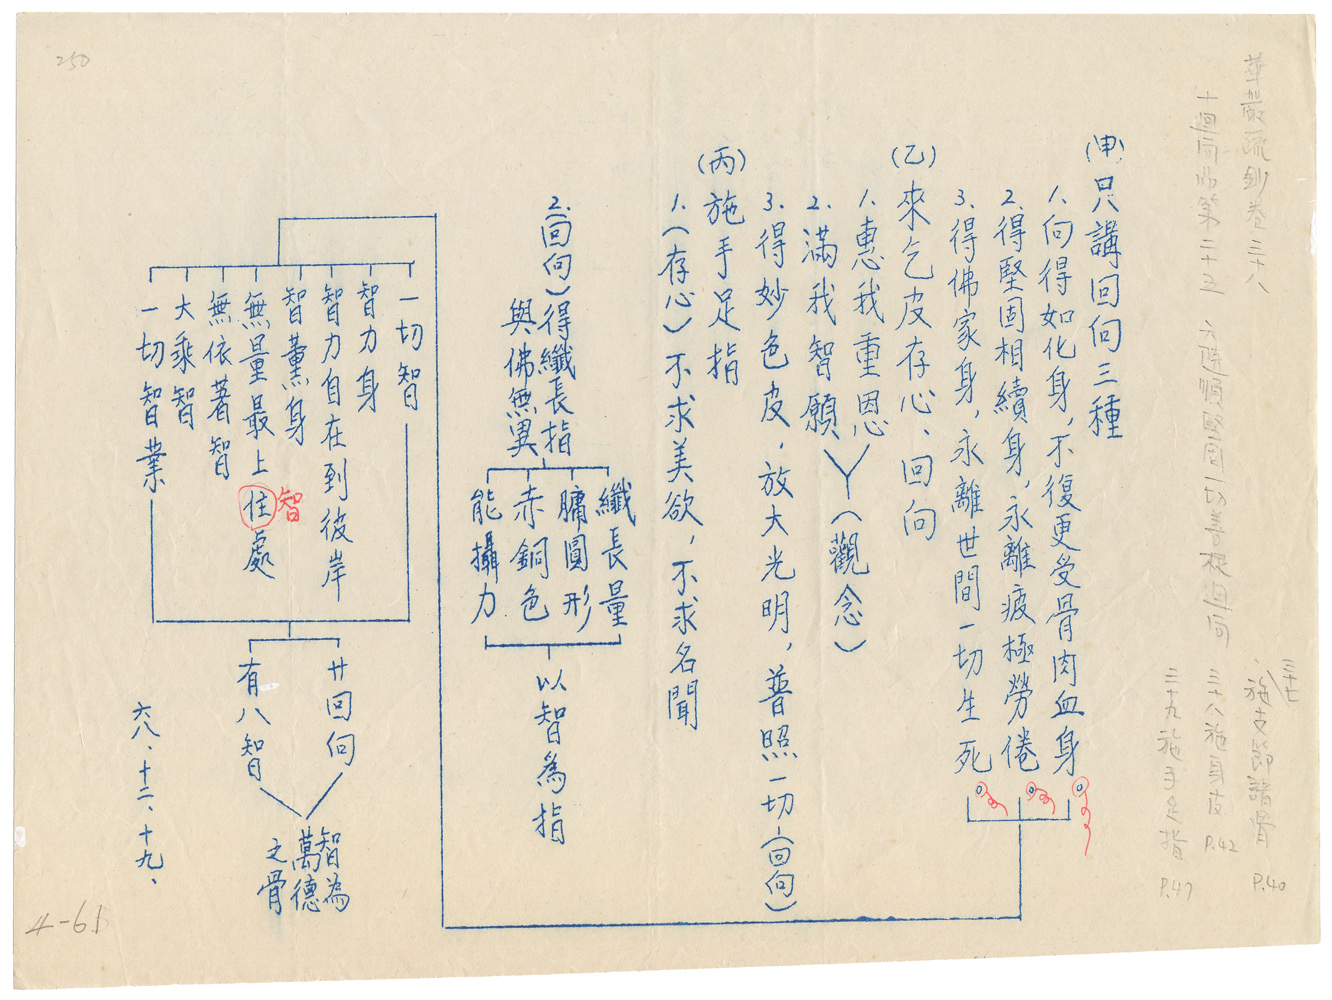 250
華嚴疏鈔卷三十八
十迴向品第二十五 六隨順堅固一切善根迴向
三十七
施支節諸骨 P.40
三十八施身皮 P.42
三十九施手足指 P.47
(甲)只講回向三種
1.向得如化身,不復更受骨肉血身
2.得堅固相續身,永離疲極勞倦
3.得佛家身,永離世間一切生死
(乙)來乞皮存心、回向
1.惠我重恩
2.滿我智願
(觀念)
3.得妙色皮,放大光明,普照一切(回向)
(丙)施手足指
1.(存心)不求美欲,不求名聞
2.(回向)得纖長指
與佛無異
纖長量
臃圓形
赤銅色
能攝力
以智為指
一切智
智力身
智力自在到彼岸
智薰身
無量最上住處
智
無依著智
大乘智
一切智業
廿回向
有八智
智為
萬德
之骨
六八、十二、十九、
4-61